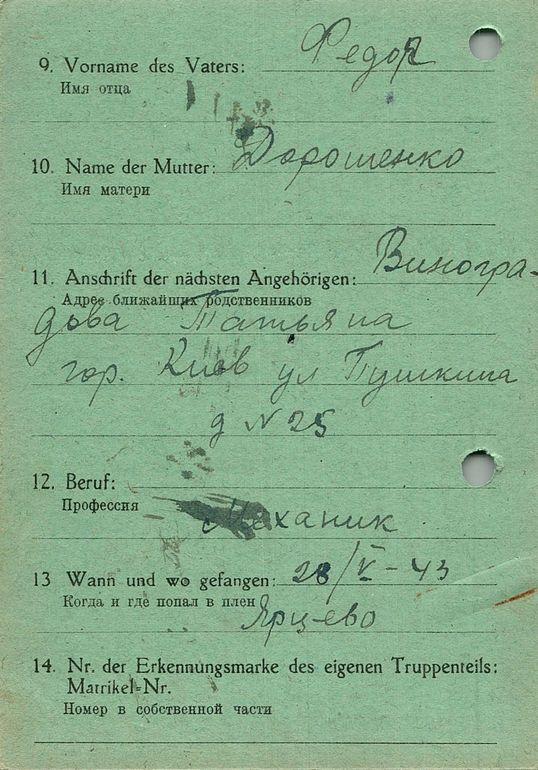 9. Vorname des Vaters: Федор
Имя отца
10. Name der Mutter: Дорошенко
Имя матери
11. Anschrift der nächsten Angehörigen: Виногра-
Адрес ближайших родственников
дова Татьяна
гор. Киев ул Пушкина
д N 25
12. Beruf:
Профессия Механик
13 Wann und wo gefangen: 28/V-43
Когда и где попал в плен Ярцево
14. Nr. der Erkennungsmarke des eigenen Truppenteils:
Matrikel-Nr.
Номер в собственной части